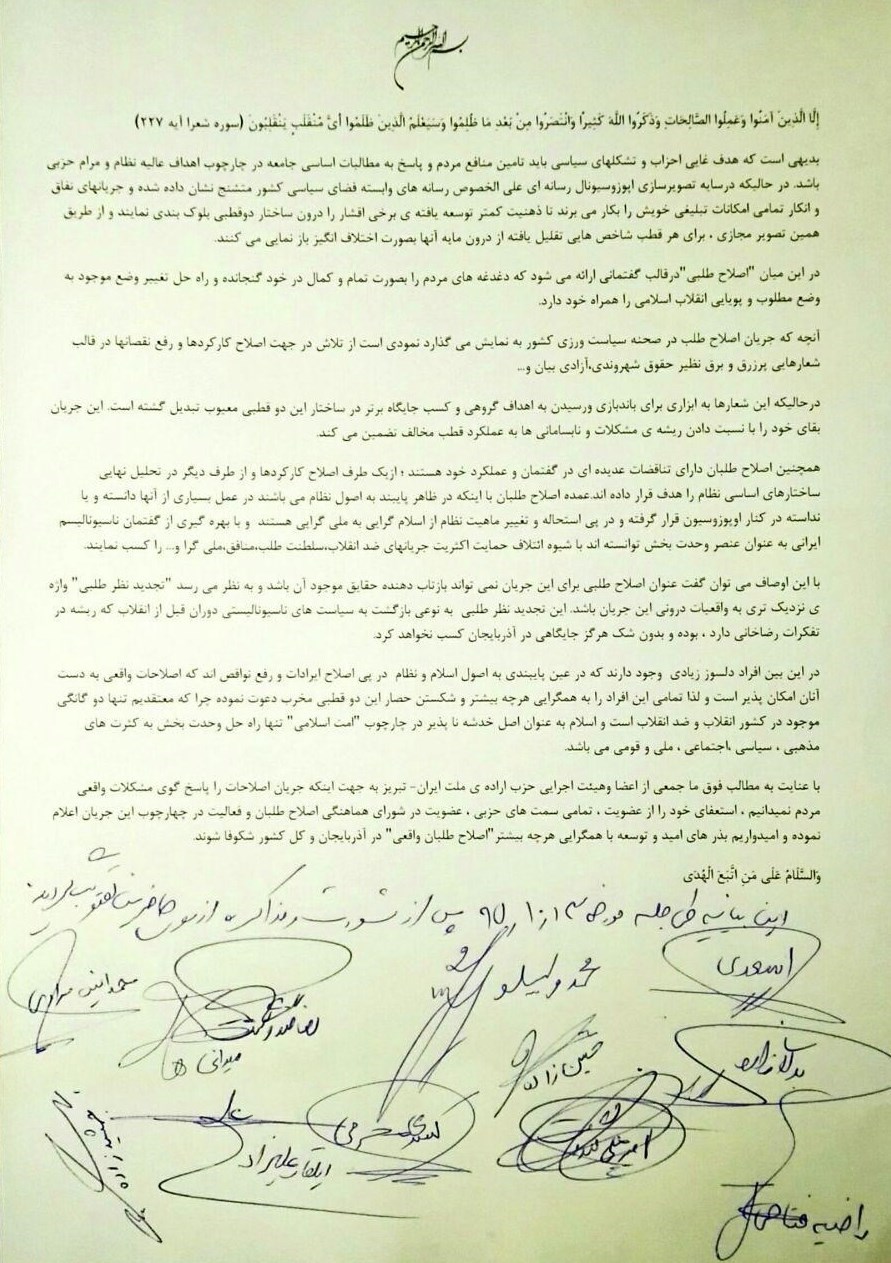 بسم الله الرحمن الرحیم
إِلَّا الَّذِينَ آمَنُوا وَعَمِلُوا الصَّالِحَاتِ وَذَكَرُوا اللَّهَ كَثِيرًا وَانْتَصَرُوا مِنْ بَعْدِ مَا ظُلِمُوا وَسَيَعْلَمُ الَّذِينَ ظَلَمُوا أَىَّ مُنْقَلَبٍ يَنْقَلِبُونَ (سوره شعرا آیه ۲۲۷)
بدیهی است که هدف غایی احزاب و تشکلهای سیاسی باید تامین منافع مردم و پاسخ به مطالبات اساسی جامعه در چارچوب اهداف عالیه نظام و مرام حزبی
باشد. در حالیکه درسایه تصویرسازی اپوزوسیونال رسانه ای علی الخصوص رسانه های وابسته فضای سیاسی کشور متشنج نشان داده شده و جریانهای نفاق
و انکار تمامی امکانات تبلیغی خویش را بکار می برند تا ذهنیت کمتر توسعه یافته ی برخی اقشار را درون ساختار دوقطبی بلوک بندی نمایند و از طریق
همین تصویر مجازی ، برای هر قطب شاخص هایی تقلیل یافته از درون مایه آنها بصورت اختلاف انگیز باز نمایی می کنند.
در این میان "اصلاح طلبی"درقالب گفتمانی ارائه می شود که دغدغه های مردم را بصورت تمام و کمال در خود گنجانده و راه حل تغییر وضع موجود به
وضع مطلوب و پویایی انقلاب اسلامی را همراه خود دارد.
آنچه که جریان اصلاح طلب در صحنه سیاست ورزی کشور به نمایش می گذارد نمودی است از تلاش در جهت اصلاح کارکردها و رفع نقصانها در قالب
شعارهایی پرزرق و برق نظیر حقوق شهروندی،آزادی بیان و...
درحالیکه این شعارها به ابزاری برای باندبازی ورسیدن به اهداف گروهی و کسب جایگاه برتر در ساختار این دو قطبی معیوب تبدیل گشته است. این جریان
بقای خود را با نسبت دادن ریشه ی مشکلات و نابسامانی ها به عملکرد قطب مخالف تضمین می کند.
همچنین اصلاح طلبان دارای تناقضات عدیده ای در گفتمان و عملکرد خود هستند ؛ ازیک طرف اصلاح کارکردها و از طرف دیگر در تحلیل نهایی
ساختارهای اساسی نظام را هدف قرار داده اند.عمده اصلاح طلبان با اینکه در ظاهر پایبند به اصول نظام می باشند در عمل بسیاری از آنها دانسته و یا
نداسته در کنار اوپوزوسیون قرار گرفته و در پی استحاله و تغییر ماهیت نظام از اسلام گرایی به ملی گرایی هستند و با بهره گیری از گفتمان ناسیونالیسم
ایرانی به عنوان عنصر وحدت بخش توانسته اند با شیوه ائتلاف حمایت اکثریت جریانهای ضد انقلاب،سلطنت طلب،منافق،ملی گرا و... را کسب نمایند.
با این اوصاف می توان گفت عنوان اصلاح طلبی برای این جریان نمی تواند بازتاب دهنده حقایق موجود آن باشد و به نظر می رسد "تجدید نظر طلبی" واژه
ی نزدیک تری به واقعیات درونی این جریان باشد. این تجدید نظر طلبی به نوعی بازگشت به سیاست های ناسیونالیستی دوران قبل از انقلاب که ریشه در
تفکرات رضاخانی دارد ، بوده و بدون شک هرگز جایگاهی در آذربایجان کسب نخواهد کرد.
در این بین افراد دلسوز زیادی وجود دارند که در عین پایبندی به اصول اسلام و نظام در پی اصلاح ایرادات و رفع نواقص اند که اصلاحات واقعی به دست
آنان امکان پذیر است و لذا تمامی این افراد را به همگرایی هرچه بیشتر و شکستن حصار این دو قطبی مخرب دعوت نموده چرا که معتقدیم تنها دو گانگی
موجود در کشور انقلاب و ضد انقلاب است و اسلام به عنوان اصل خدشه نا پذیر در چارچوب "امت اسلامی" تنها راه حل وحدت بخش به کثرت های
مذهبی ، سیاسی ،اجتماعی ، ملی و قومی می باشد.
با عنایت به مطالب فوق ما جمعی از اعضا وهیئت اجرایی حزب اراده ی ملت ایران- تبریز به جهت اینکه جریان اصلاحات را پاسخ گوی مشکلات واقعی
مردم نمیدانیم ، استعفای خود را از عضویت ، تمامی سمت های حزبی ، عضویت در شورای هماهنگی اصلاح طلبان و فعالیت در چهارچوب این جریان اعلام
نموده و امیدواریم بذر های امید و توسعه با همگرایی هرچه بیشتر"اصلاح طلبان واقعی" در آذربایجان و کل کشور شکوفا شوند.
وَالسَّلامُ عَلَى مَنِ اتَّبَعَ الْهُدَى
این بیانیه طی جلسه مورخه ۹۵ پس از مشورت و مذاکره از سوی حاضرین تصویب گردید
اسعدی
محمد وکیلو
محمد امین مرادی
میدانی
حسین زاده
ایلقار علیزاد
راضیه فتاحی